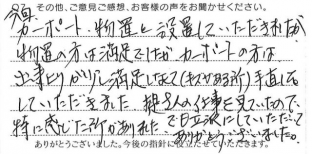 その他、ご意見ご感想、お客様の声をお聞かせください。
今回、カーポート、物置と設置していただきましたが
物置の方は満足でしたがカーポートの方は
出来上がりに満足しなくて(キズがある所)手直しも
していただきました。 の仕事を見ていたので、
特に感じた所がありました。でも立派にしていただいて
ありがとうございました。
ありがとうございました。今後の指針に役立たせていただきます。